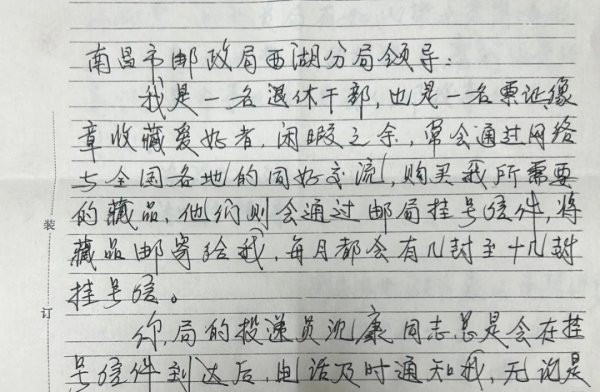 南昌市邮政局西湖分局领导：
我是一名退休干部，也是一名票证像
章收藏爱好者，闲暇之余，常会通过网络
与全国各地的同好交流，购买我所需要
的藏品，他们则会通过邮局挂号信件，将
藏品邮寄给我，每月都会有几封至十几封
挂号信。
你局的投递员沈康同志总是会在挂
号信件到达后，电话及时通知我，无论是
装
订